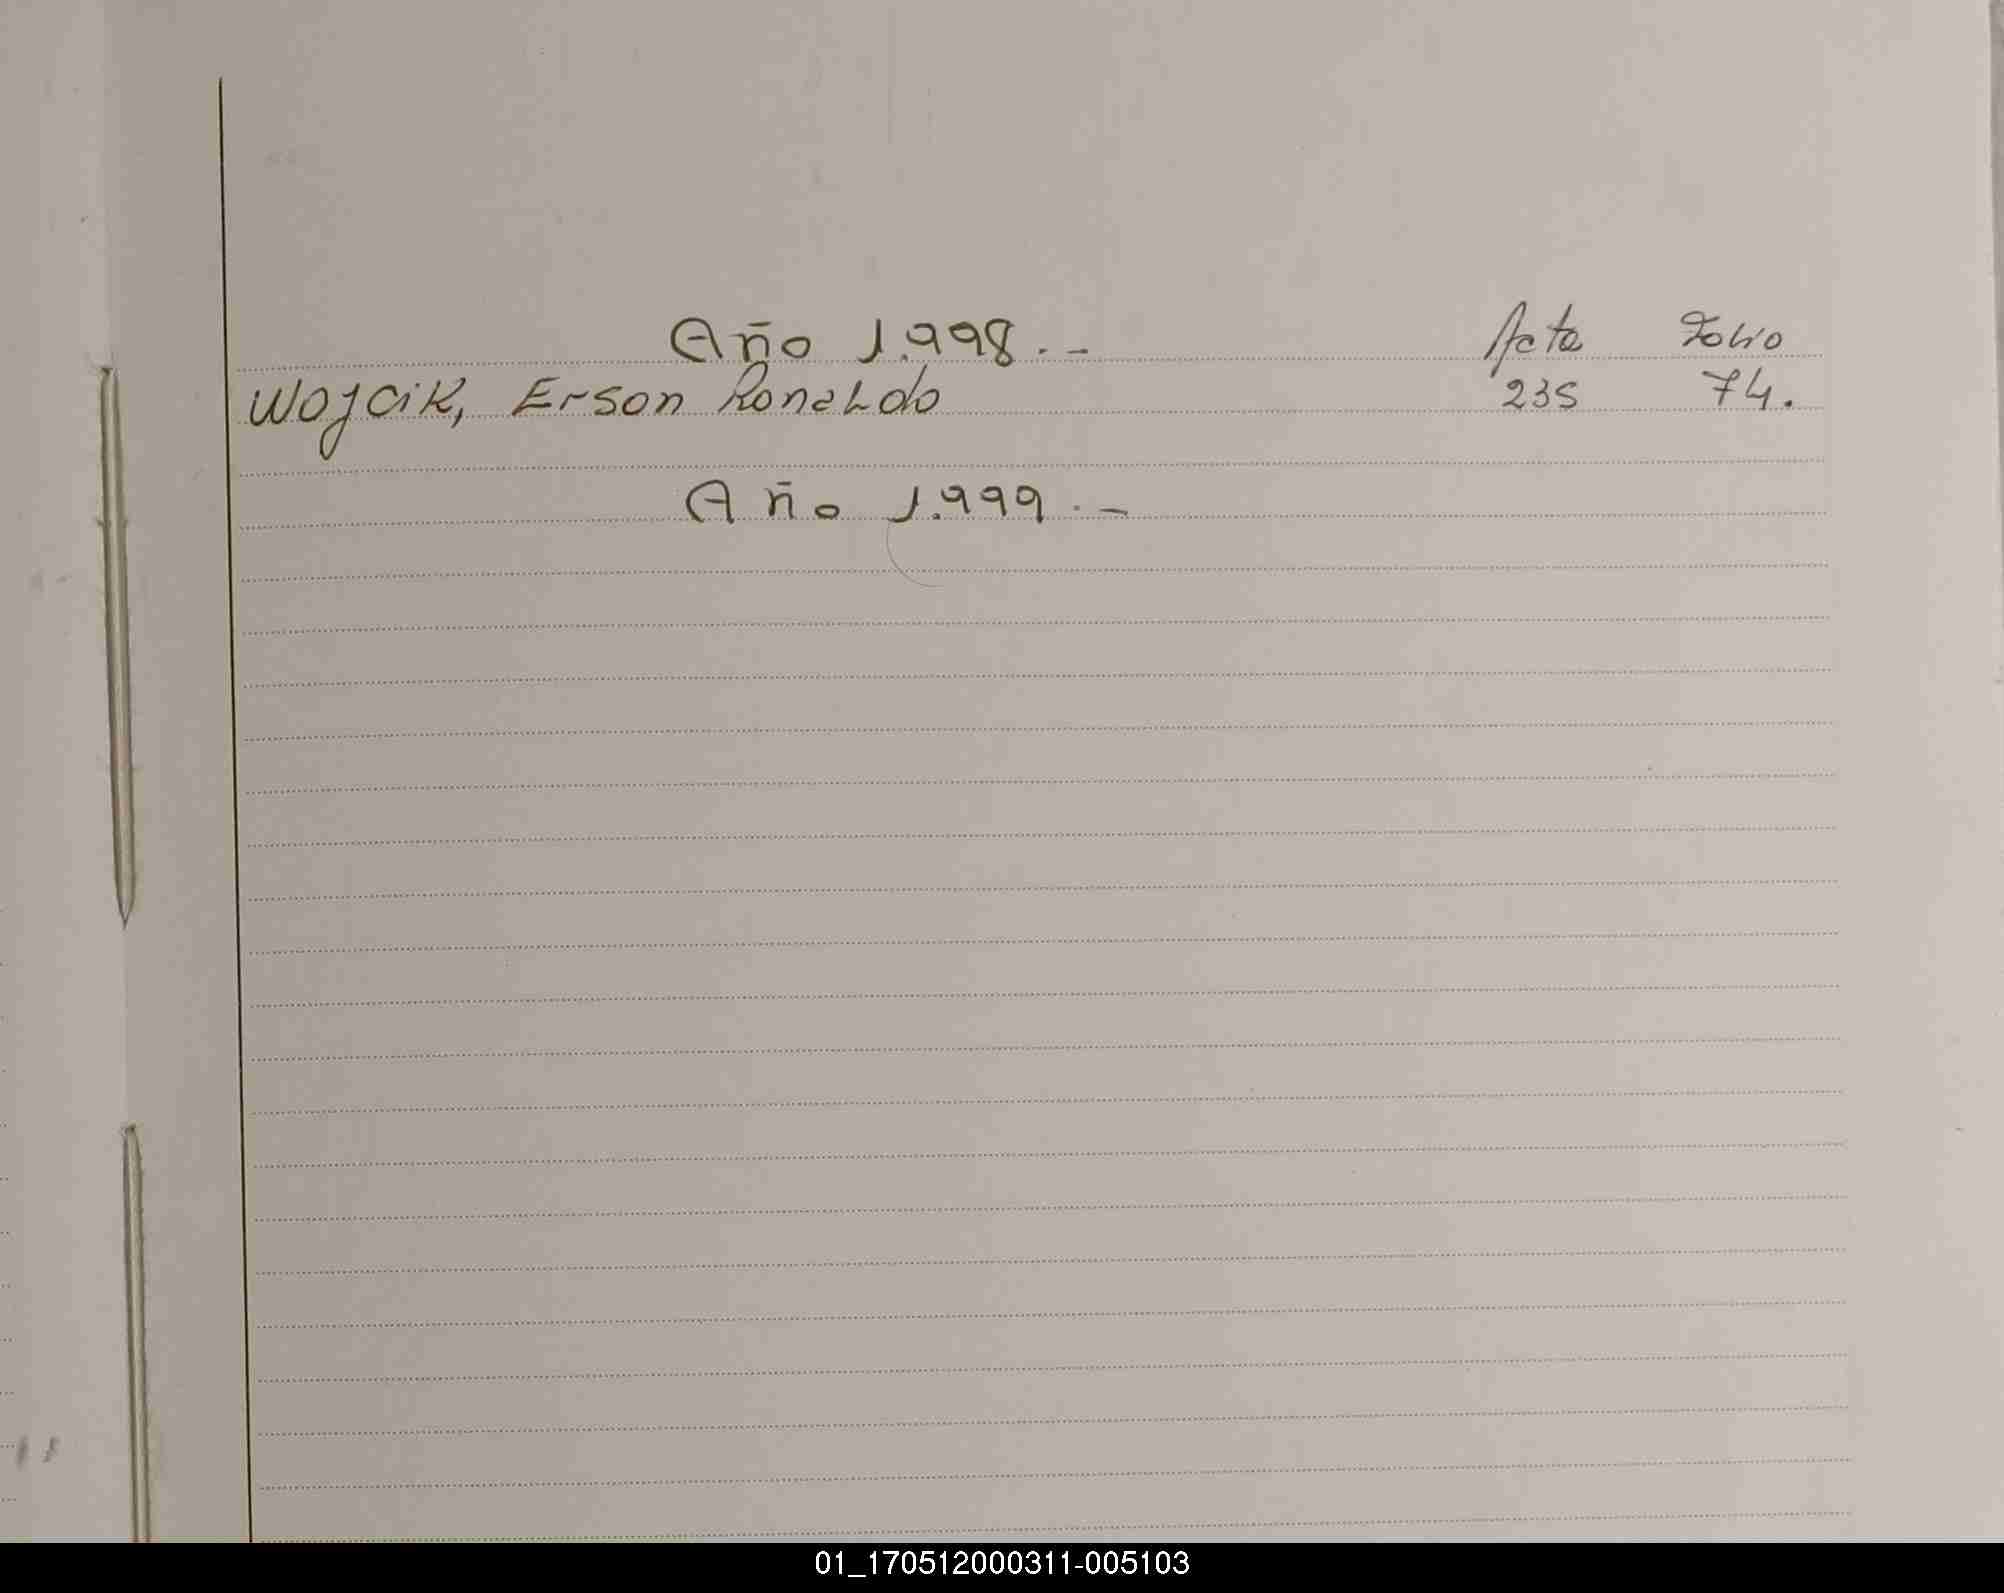 Año 1.998.- Acta Folio
Wojcik, Erson Ronaldo 235 74.
Año 1.999.-
01_170512000311-005103